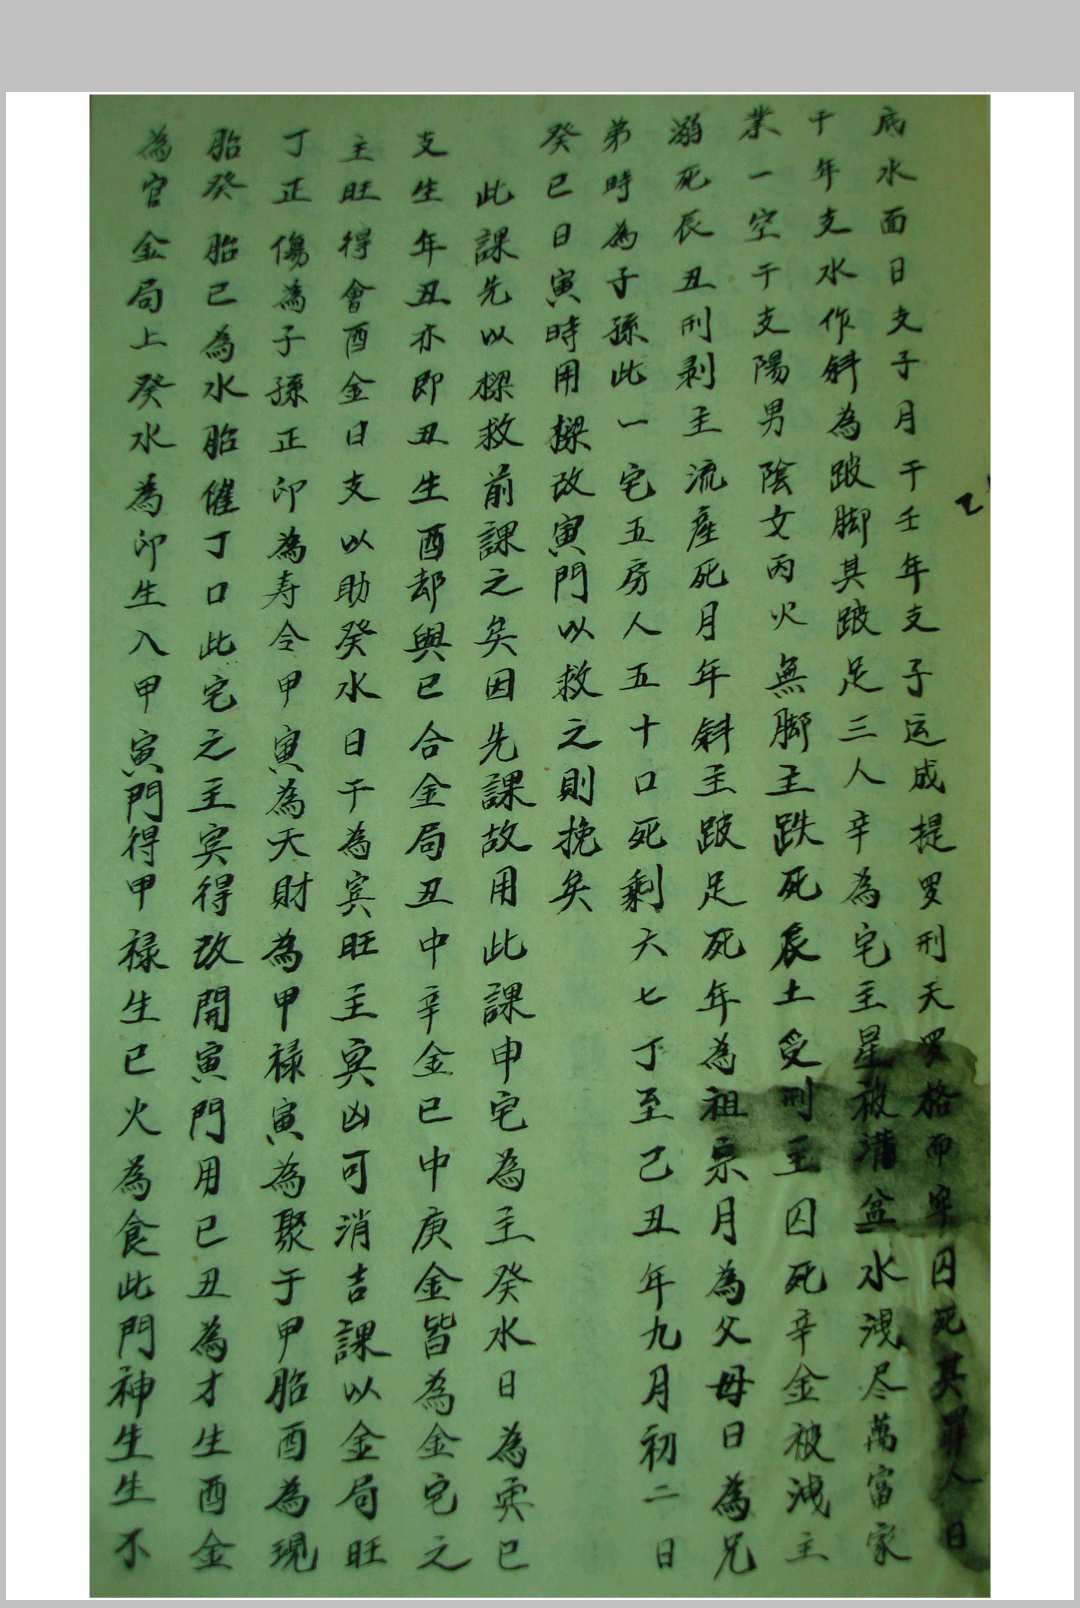 底水面日支子月干壬年支子运成提罗刑天罗格而牢囚死其罪人日
干年支水作斜為跛脚其跛足三人辛為宅主星被满盆水洩尽萬富家
業一空干支陽男陰女丙火無脚主跌死辰土受刑主囚死辛金被洩主
溺死辰丑刑剥主流産死月年斜主跛足死年為祖宗月為父母日為兄
弟時為子孫此一宅五房人五十口死剩六七丁至己丑年九月初二日
癸巳日寅時用樑改寅門以救之則挽矣
此課先以樑救前課之矣因先課故用此課申宅為主癸水日為宾巳
支生年丑亦即丑生酉却與巳合金局丑中辛金巳中庚金皆為金宅之
主旺得會酉金日支以助癸水日干為宾旺主宾凶可消吉課以金局旺
丁正傷為子孫正印為寿令甲寅為天財為甲禄寅為聚于甲胎酉為現
胎癸胎巳為水胎催丁口此宅之主宾得改開寅門用巳丑為才生酉金
為官金局上癸水為印生入甲寅門得甲禄生巳火為食此門神生生不